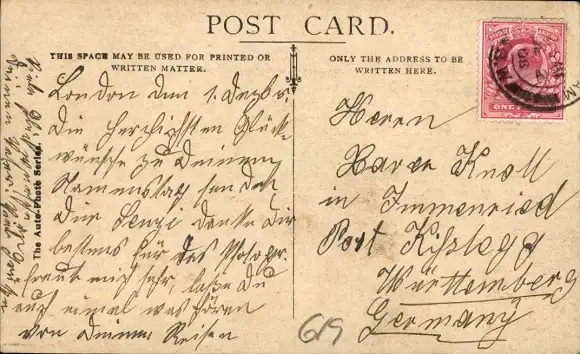 POST CARD.
THIS SPACE MAY BE USED FOR PRINTED OR
WRITTEN MATTER.
ONLY THE ADDRESS TO BE
WRITTEN HERE.
London den 1. Dezbr.
Die herzlichsten Glück-
wünsche zu Deinem
Namenstage sendet
Dir Senze danke Dir
bestens für das Photogr.
freut mich sehr, laße Du
auf einmal was hören
von Deinen Reisen
The Auto-Photo Series.
Herrn
Xaver Knoll
in Immenried
Post Kißlegg
Württemberg
Germany
619